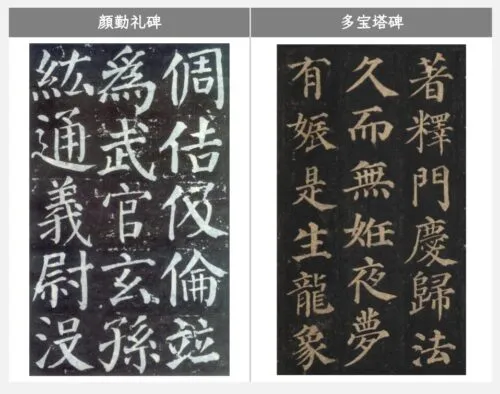 顔勤礼碑
倜佶伋倫竝
爲武官玄孫
紘通義尉没
多宝塔碑
著釋門慶歸法
久而無姙夜夢
有娠是生龍象